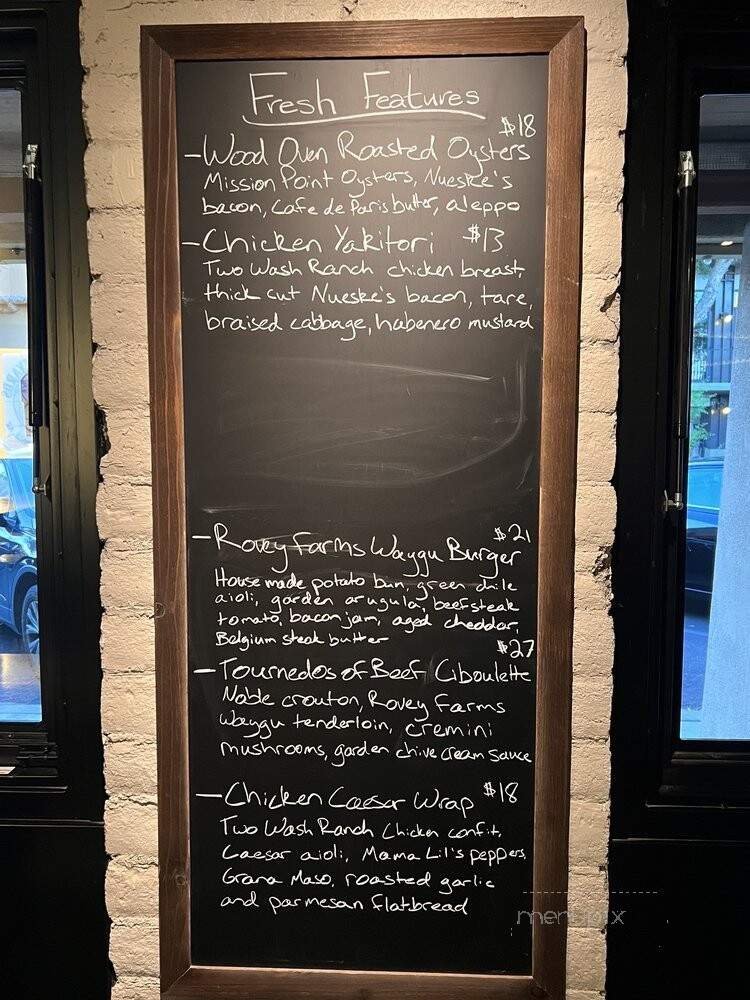 Fresh Features
$18
- Wood Oven Roasted Oysters
Mission Point Oysters, Nueske's
bacon, Cafe de Paris butter, aleppo
- Chicken Yakitori $13
Two Wash Ranch chicken breast,
thick cut Nueske's bacon, tare,
braised cabbage, habenero mustard
- Rovey Farms Waygu Burger $21
House made potato bun, green chile
aioli, garden arugula, beefsteak
tomato, bacon jam, aged cheddar,
Belgium steak butter
$27
- Tournedos of Beef Ciboulette
Noble crouton, Rovey Farms
Waygu tenderloin, cremini
mushrooms, garden chive cream sauce
- Chicken Caesar Wrap $18
Two Wash Ranch Chicken confit,
Caesar aioli, Mama Lil's peppers,
Grana Maso, roasted garlic
and parmesan flatbread
menupix